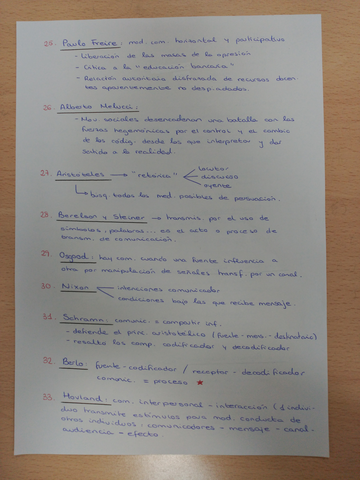 25. Paulo Freire: mod. com. horizontal y participativo
- Liberación de las masas de la opresión
- Crítica a la "educación bancaria"
- Relación autoritaria disfrazada de recursos docen
tes aparentemente no
26. Alberto Melucci:
- Mov. sociales desencadenan una batalla con las
fuerzas hegemónicas por el control y el cambio
de los códig. desde los que interpretar y dar
sentido a la realidad.
27. Aristóteles → "retórica"
locutor
discurso
oyente
busq. todos los med. posibles de persuasión.
28. Berelson y Steiner → transmis. por el uso de
símbolos, palabras... es el acto o proceso de
transm. de comunicación.
29. Osgood: hay com. cuando una fuente influencia a
otra por manipulación de señales transf. por un canal.
30. Nixon
intenciones comunicador
condiciones bajo las que recibe mensaje.
31. Schramm: comunic. = compartir inf.
- defiende el princ. aristotélico (fuente - mens. - destinatario)
- resalta los comp. codificador y decodificador
32. Berlo: fuente - codificador / receptor - decodificador
comunic. = proceso
33. Hovland: com. interpersonal - interacción (1 indivi-
duo transmite estímulos para mod. conducta de
otros individuos: comunicadores - mensaje - canal -
audiencia - efecto.